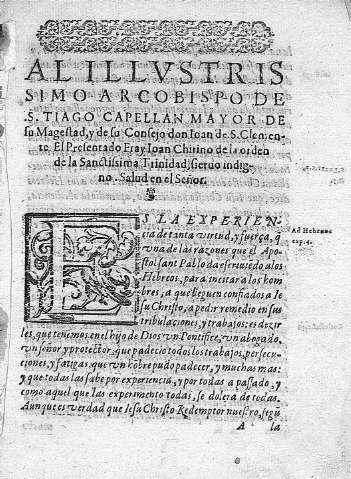 AL ILLVSTRIS
SIMO ARCOBISPO DE
S. TIAGO CAPELLAN MAYOR DE
su Magestad, y de su Consejo don Ioan de S. Clemen-
te. El Presentado Fray Ioan Chirino de la orden
de la Sanctissima Trinidad, sieruo indig
no. Salud en el Señor.
ES LA EXPERIEN
cia de tanta virtud, y fuerça, q̃
vna de las razones que el Apo-
stol sant Pablo da escriuiẽdo a los
Hebreos, para incitar a los hom
bres, a que lleguen confiados a Ie
su Christo, a pedir remedio en sus
tribulaciones, y trabajos: es dezir
les, que tenemos en el hijo de Dios vn Pontifice, vn abogado,
vn señor y protector, que padecio todos los trabajos, persecu-
ciones, y fatigas, que vn hõbre pudo padecer, y muchas mas:
y que todas las sabe por experiencia, y por todas a passado, y
como aquel que las experimento todas, se dolera de todas.
Aunque es verdad que Iesu Christo Redemptor nuestro, segũ
A la
Ad Hebræos
cap. 4.